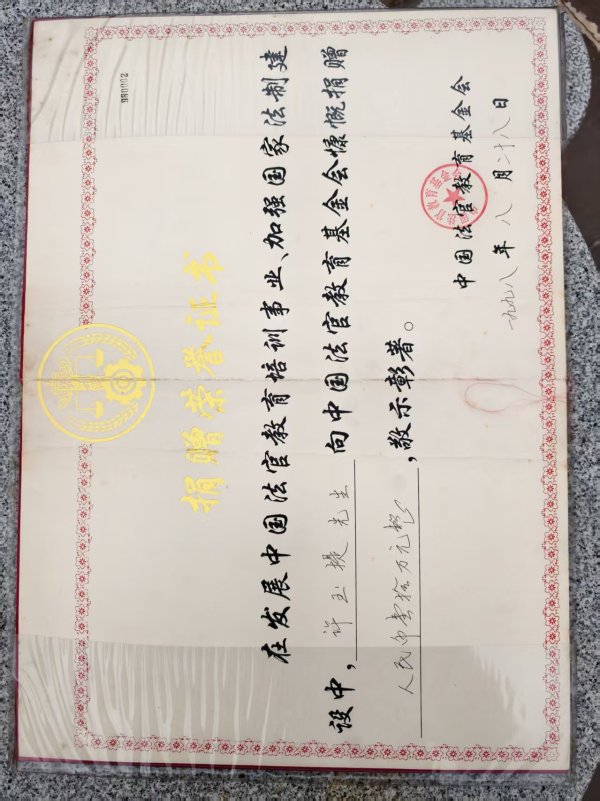 捐赠荣誉证书
在发展中国法官教育培训事业、加强国家法制建
设中，许玉提先生向中国法官教育基金会慷慨捐赠
人民币壹拾万元整，敬示彰著。
中国法官教育基金会
一九九八年八月二十八日